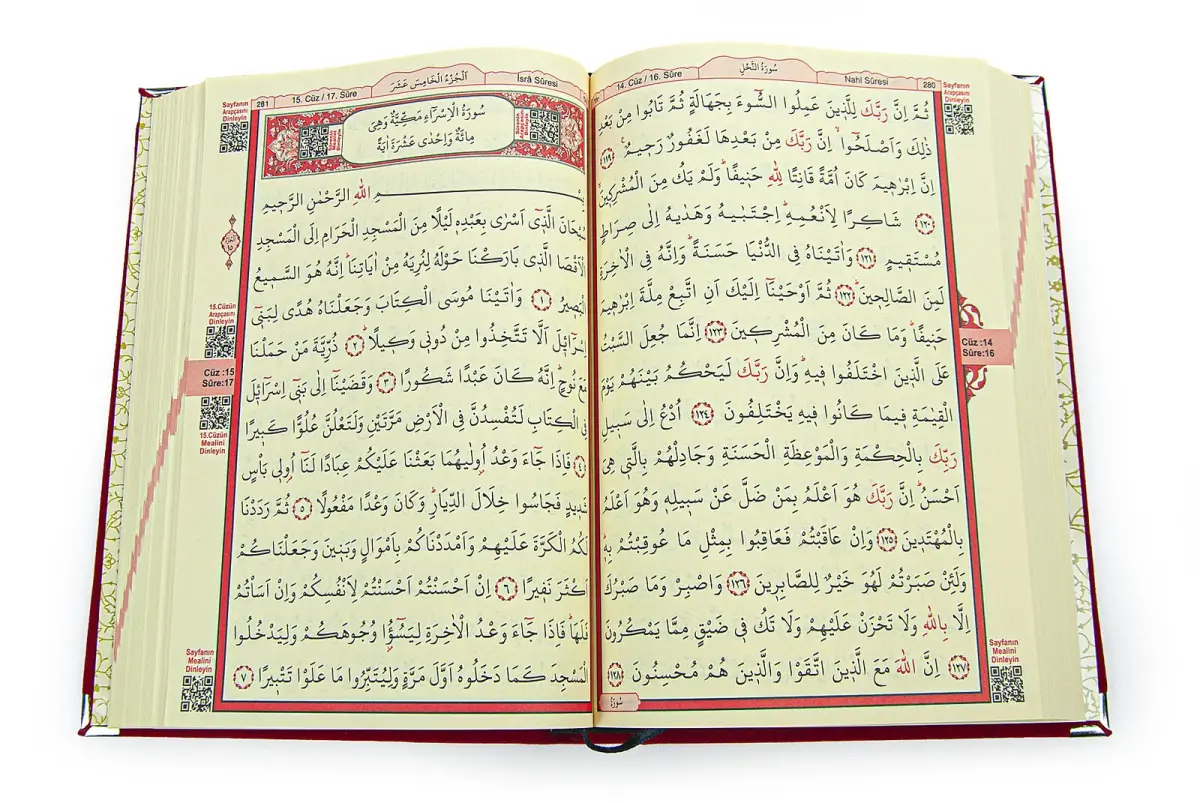 280
Nahl Sûresi
سُورَةُ النَّحْلِ
14. Cüz / 16. Sûre
ثُمَّ اِنَّ رَبَّكَ لِلَّذ۪ينَ عَمِلُوا السُّٓوءَ بِجَهَالَةٍ ثُمَّ تَابُوا مِنْ بَعْدِ
ذٰلِكَ وَاَصْلَحُٓواۙ اِنَّ رَبَّكَ مِنْ بَعْدِهَا لَغَفُورٌ رَح۪يمٌ۟ ﴿١١٩﴾
اِنَّ اِبْرٰه۪يمَ كَانَ اُمَّةً قَانِتًا لِلّٰهِ حَن۪يفًاۜ وَلَمْ يَكُ مِنَ الْمُشْرِك۪ينَۙ
﴿١٢٠﴾ شَاكِرًا لِاَنْعُمِه۪ۜ اِجْتَبٰيهُ وَهَدٰيهُ اِلٰى صِرَاطٍ
مُسْتَق۪يمٍ ﴿١٢١﴾ وَاٰتَيْنَاهُ فِي الدُّنْيَا حَسَنَةًۜ وَاِنَّهُ فِي الْاٰخِرَةِ
لَمِنَ الصَّالِح۪ينَۜ ﴿١٢٢﴾ ثُمَّ اَوْحَيْنَٓا اِلَيْكَ اَنِ اتَّبِعْ مِلَّةَ اِبْرٰه۪يمَ
حَن۪يفًاۜ وَمَا كَانَ مِنَ الْمُشْرِك۪ينَ ﴿١٢٣﴾ اِنَّمَا جُعِلَ السَّبْتُ
عَلَى الَّذ۪ينَ اخْتَلَفُوا ف۪يهِۜ وَاِنَّ رَبَّكَ لَيَحْكُمُ بَيْنَهُمْ يَوْمَ
الْقِيٰمَةِ ف۪يمَا كَانُوا ف۪يهِ يَخْتَلِفُونَ ﴿١٢٤﴾ اُدْعُ اِلٰى سَب۪يلِ
رَبِّكَ بِالْحِكْمَةِ وَالْمَوْعِظَةِ الْحَسَنَةِ وَجَادِلْهُمْ بِالَّت۪ي هِيَ
اَحْسَنُۜ اِنَّ رَبَّكَ هُوَ اَعْلَمُ بِمَنْ ضَلَّ عَنْ سَب۪يلِه۪ وَهُوَ اَعْلَمُ
بِالْمُهْتَد۪ينَ ﴿١٢٥﴾ وَاِنْ عَاقَبْتُمْ فَعَاقِبُوا بِمِثْلِ مَا عُوقِبْتُمْ بِه۪ۜ
وَلَئِنْ صَبَرْتُمْ لَهُوَ خَيْرٌ لِلصَّابِر۪ينَ ﴿١٢٦﴾ وَاصْبِرْ وَمَا صَبْرُكَ
اِلَّا بِاللّٰهِ وَلَا تَحْزَنْ عَلَيْهِمْ وَلَا تَكُ ف۪ي ضَيْقٍ مِمَّا يَمْكُرُونَ
﴿١٢٧﴾ اِنَّ اللّٰهَ مَعَ الَّذ۪ينَ اتَّقَوْا وَالَّذ۪ينَ هُمْ مُحْسِنُونَ ﴿١٢٨﴾
سُورَةُ
Sayfanın
Arapçasını
Dinleyin
Cüz :14
Sûre:16
Sayfanın
Mealini
Dinleyin
İsrâ Sûresi
اَلْجُزْءُ الْخَامِسَ عَشَرَ
15. Cüz / 17. Sûre
281
سُورَةُ الْاِسْرَٓاءِ مَكِّيَّةٌ وَهِيَ
مِائَةٌ وَاِحْدٰى عَشَرَةَ اٰيَةً
بِسْــــــــــــمِ اللّٰهِ الرَّحْمٰنِ الرَّح۪يمِ
سُبْحَانَ الَّذ۪ٓي اَسْرٰى بِعَبْدِه۪ لَيْلًا مِنَ الْمَسْجِدِ الْحَرَامِ اِلَى الْمَسْجِدِ
الْاَقْصَا الَّذ۪ي بَارَكْنَا حَوْلَهُ لِنُرِيَهُ مِنْ اٰيَاتِنَاۜ اِنَّهُ هُوَ السَّم۪يعُ
الْبَص۪يرُ ﴿١﴾ وَاٰتَيْنَا مُوسَى الْكِتَابَ وَجَعَلْنَاهُ هُدًى لِبَن۪ٓي
اِسْرَٓائ۪لَ اَلَّا تَتَّخِذُوا مِنْ دُون۪ي وَك۪يلًاۜ ﴿٢﴾ ذُرِّيَّةَ مَنْ حَمَلْنَا
مَعَ نُوحٍۜ اِنَّهُ كَانَ عَبْدًا شَكُورًا ﴿٣﴾ وَقَضَيْنَٓا اِلٰى بَن۪ٓي اِسْرَٓائ۪لَ
فِي الْكِتَابِ لَتُفْسِدُنَّ فِي الْاَرْضِ مَرَّتَيْنِ وَلَتَعْلُنَّ عُلُوًّا كَب۪يرًا
﴿٤﴾ فَاِذَا جَٓاءَ وَعْدُ اُو۫لٰيهُمَا بَعَثْنَا عَلَيْكُمْ عِبَادًا لَنَٓا اُو۬ل۪ي بَأْسٍ
شَد۪يدٍ فَجَاسُوا خِلَالَ الدِّيَارِۜ وَكَانَ وَعْدًا مَفْعُولًا ﴿٥﴾ ثُمَّ رَدَدْنَا
لَكُمُ الْكَرَّةَ عَلَيْهِمْ وَاَمْدَدْنَاكُمْ بِاَمْوَالٍ وَبَن۪ينَ وَجَعَلْنَاكُمْ
اَكْثَرَ نَف۪يرًا ﴿٦﴾ اِنْ اَحْسَنْتُمْ اَحْسَنْتُمْ لِاَنْفُسِكُمْ وَاِنْ اَسَأْتُمْ
فَلَهَاۜ فَاِذَا جَٓاءَ وَعْدُ الْاٰخِرَةِ لِيَسُٓؤُ۫ا وُجُوهَكُمْ وَلِيَدْخُلُوا
الْمَسْجِدَ كَمَا دَخَلُوهُ اَوَّلَ مَرَّةٍ وَلِيُتَبِّرُوا مَا عَلَوْا تَتْب۪يرًا ﴿٧﴾
Sayfanın
Arapçasını
Dinleyin
اَلْجُزْءُ
١٥
15.Cüzün
Arapçasını
Dinleyin
Cüz :15
Sûre:17
15.Cüzün
Mealini
Dinleyin
Sayfanın
Mealini
Dinleyin